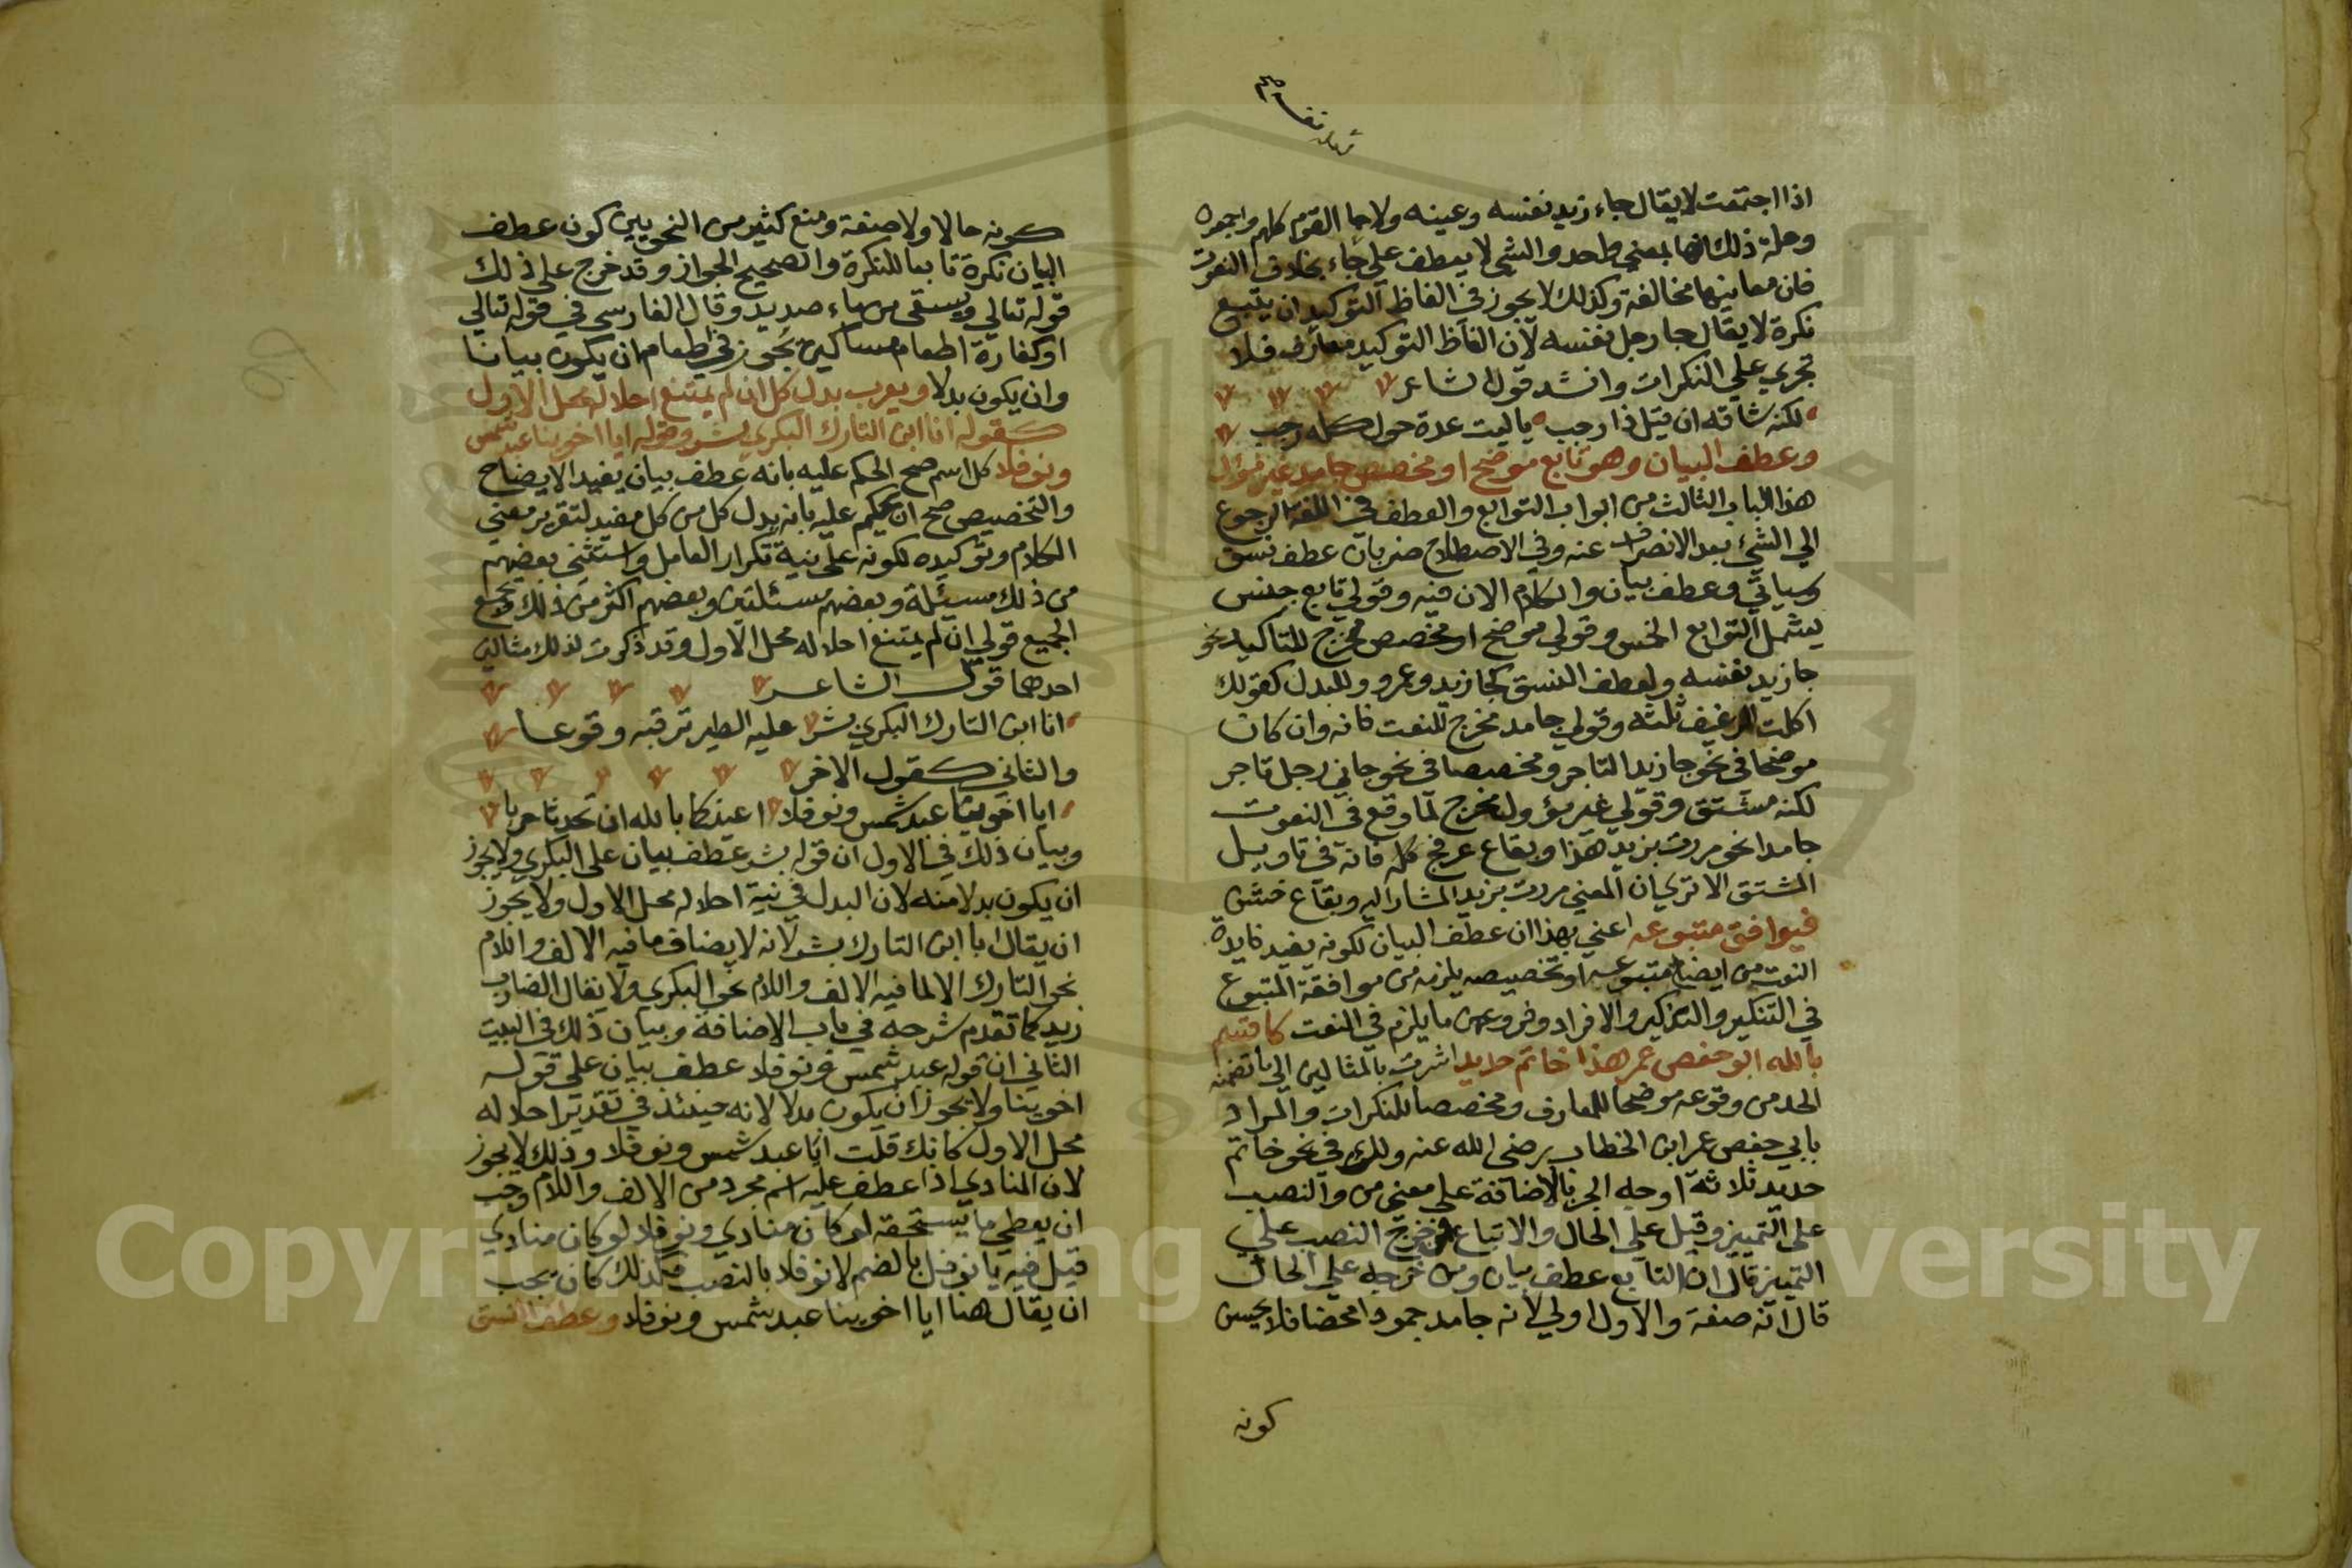 اذا اجتمعت لا يقال جاء زيد نفسه وعينه ولا جا القوم كلهم واجمعون
وعلة ذلك انها بمعني واحد والشي لا يعطف علي جاء بخلاف النعوت
فان معانيها مخالفة وكذلك لا يجوز في الفاظ التوكيد ان يتبع
نكرة لا يقال جا رجل نفسه لان الفاظ التوكيد معارف فلا
تجري علي النكرات وانشد قول الشاعر
لكنه شاقه ان قيل ذا رجب يا ليت عدة حول كله رجب
وعطف البيان وهو تابع موضح او مخصص جامد غير مؤول
هذا الباب الثالث من ابواب التوابع والعطف في اللغة الرجوع
الي الشيء بعد الانصراف عنه وفي الاصطلاح ضربان عطف نسق
وسياتي وعطف بيان والكلام الان فيه وقولي تابع جنس
يشمل التوابع الخمس وقولي موضح او مخصص مخرج للتاكيد نحو
جا زيد نفسه ولعطف النسق كجا زيد وعمرو وللبدل كقولك
اكلت الرغيف ثلثه وقولي جامد مخرج للنعت فانه وان كان
موضحا في نحو جا زيد التاجر ومخصصا في نحو جاني رجل تاجر
لكنه مشتق وقولي غير مؤول مخرج لما وقع في النعوت
جامدا نحو مررت بزيد هذا وبقاع عرفج كله فانه في تاويل
المشتق الا تري ان المعني مررت بزيد المشار اليه وبقاع خشن
فيوافق متبوعه اعني بهذا ان عطف البيان لكونه يفيد فايدة
النعت من ايضاح متبوعه او تخصيصه يلزمه من موافقة المتبوع
في التنكير والتذكير والافراد وفروعهن ما يلزم في النعت كاقسم
بالله ابو حفص عمر هذا خاتم حديد اشرت بالمثالين الي ما تضمنه
الحد من وقوعه موضحا للمعارف ومخصصا للنكرات والمراد
بابي حفص عمر ابن الخطاب رضي الله عنه ولك في نحو خاتم
حديد ثلاثة اوجه الجر بالاضافة علي معني من والنصب
علي التمييز وقيل علي الحال والاتباع فمن خرج النصب علي
التمييز قال ان التابع عطف بيان ومن خرجه علي الحال
قال انه صفة والاول اولي لانه جامد جمودا محضا فلا يحسن
كونه
كونه حالا ولا صفة ومنع كثير من النحويين كون عطف
البيان نكرة تابعا للنكرة والصحيح الجواز وقد خرج علي ذلك
قوله تعالي ويسقي من ماء صديد وقال الفارسي في قوله تعالي
او كفارة اطعام مساكين يجوز في طعام ان يكون بيانا
وان يكون بدلا ويعرب بدل كل ان لم يمتنع احلاله محل الاول
كقوله انا ابن التارك البكري بشر وقوله ايا اخوينا عبد شمس
ونوفلا كل اسم صح الحكم عليه بانه عطف بيان يفيد الايضاح
والتخصيص صح ان يحكم عليه بانه بدل كل من كل مفيد لتقرير معني
الكلام وتوكيده لكونه علي نية تكرار العامل واستثني بعضهم
من ذلك مسيئلة وبعضهم مسئلتين وبعضهم اكثر من ذلك ويجمع
الجميع قولي ان لم يمتنع احلاله محل الاول وقد ذكرت لذلك مثالين
احدهما قول الشاعر
انا ابن التارك البكري بشر عليه الطير ترقبه وقوعا
والثاني كقول الاخر
ايا اخوينا عبد شمس ونوفلا اعيذكما بالله ان تحدثا حربا
وبيان ذلك في الاول ان قوله بشر عطف بيان علي البكري ولا يجوز
ان يكون بدلا منه لان البدل في نية احلاله محل الاول ولا يجوز
ان يقال انا ابن التارك بشر لانه لا يضاف ما فيه الالف واللام
نحو التارك الا لما فيه الالف واللام نحو البكري ولا يقال الضارب
زيد كما تقدم شرحه في باب الاضافة وبيان ذلك في البيت
الثاني ان قوله عبد شمس ونوفلا عطف بيان علي قوله
اخوينا ولا يجوز ان يكون بدلا لانه حينئذ في تقدير احلاله
محل الاول كانك قلت ايا عبد شمس ونوفلا وذلك لا يجوز
لان المنادي اذا عطف عليه اسم مجرد من الالف واللام وجب
ان يعطي ما يستحقه لو كان منادي ونوفلا لو كان منادي
قيل فيه يا نوفل بالضم لا نوفلا بالنصب فلذلك كان يجب
ان يقال هنا ايا اخوينا عبد شمس ونوفلا وعطف النسق
Copyright © King Saud University